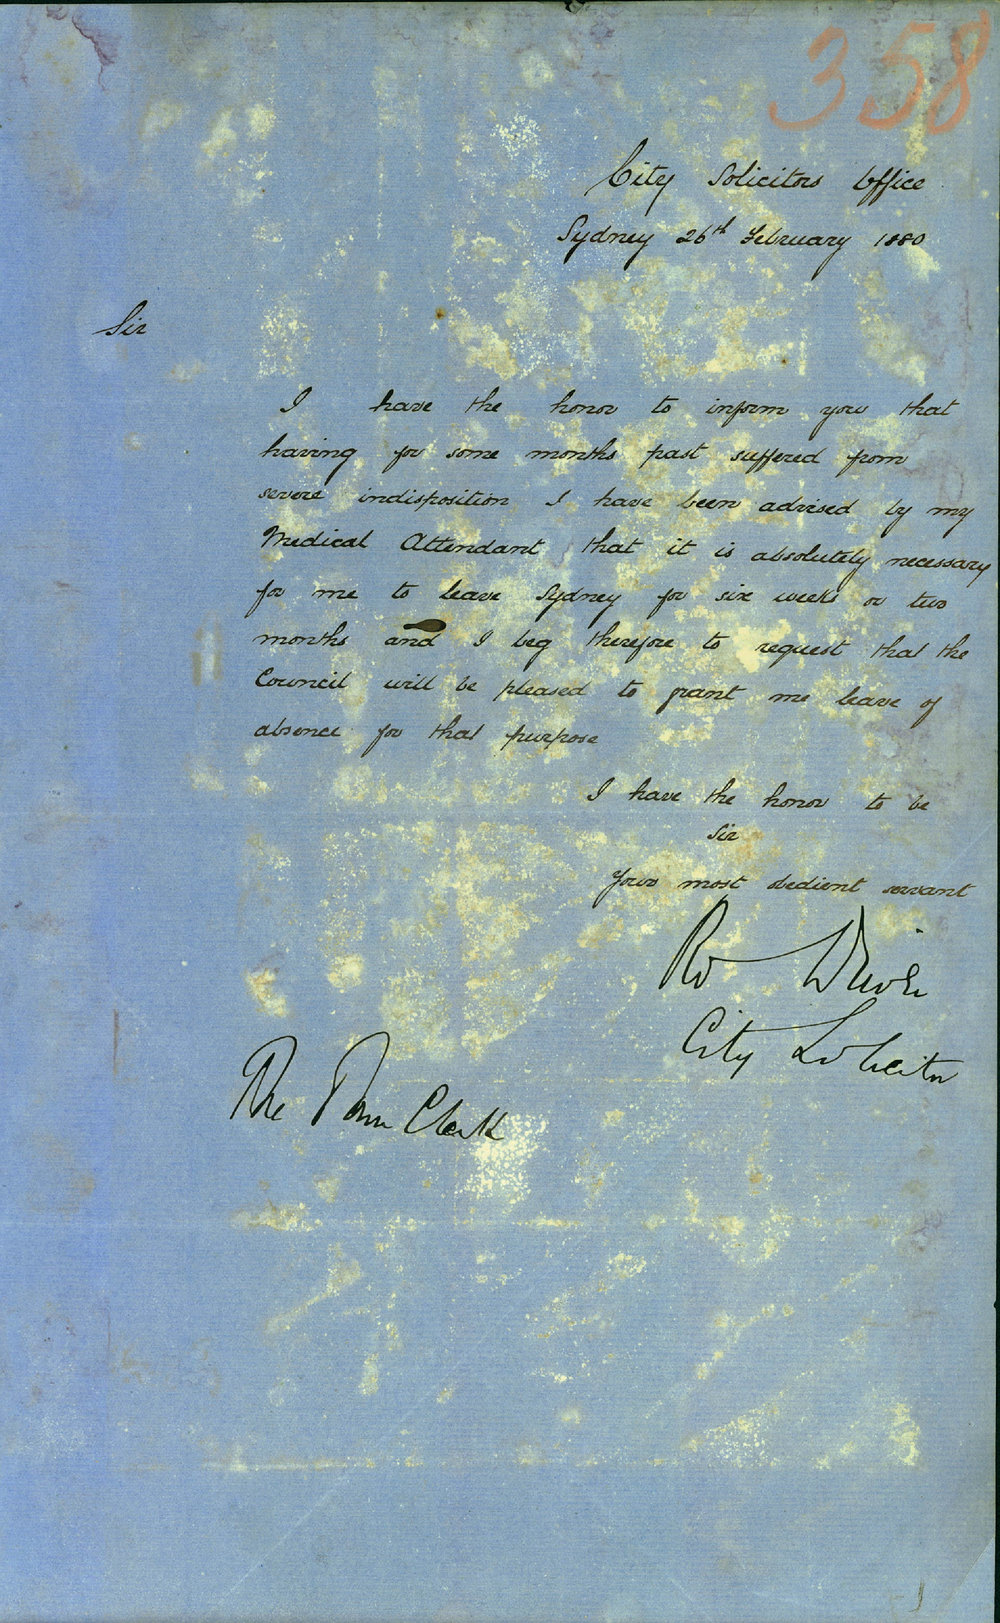 358
City Solicitors Office
Sydney 26th February 1880
Sir
I have the honor to inform you that
having for some months past suffered from
severe indisposition I have been advised by my
Medical Attendant that it is absolutely necessary
for me to leave Sydney for six weeks or two
months and I beg therefore to request that the
Council will be pleased to grant me leave of
absence for that purpose
I have the honor to be
Sir
Your most obedient servant
Rd Driver
City Solicitor
The Town Clerk